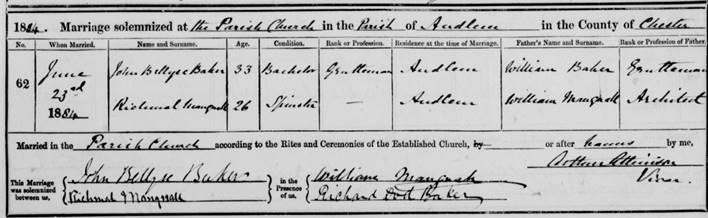 1884. Marriage solemnized at the Parish Church in the Parish of Audlem in the County of Chester
No. When Married. Name and Surname. Age. Condition. Rank or Profession. Residence at the time of Marriage. Father's Name and Surname. Rank or Profession of Father.
62 June 23rd 1884 John Bellyse Baker 33 Bachelor Gentleman Audlem William Baker Gentleman
Richmal Mangnall 26 Spinster — Audlem William Mangnall Architect
Married in the Parish Church according to the Rites and Ceremonies of the Established Church, by or after banns by me,
Arthur Atkinson
Vicar.
This Marriage was solemnized between us, John Bellyse Baker in the Presence of us, William Mangnall
Richmal Mangnall Richard Dod Baker